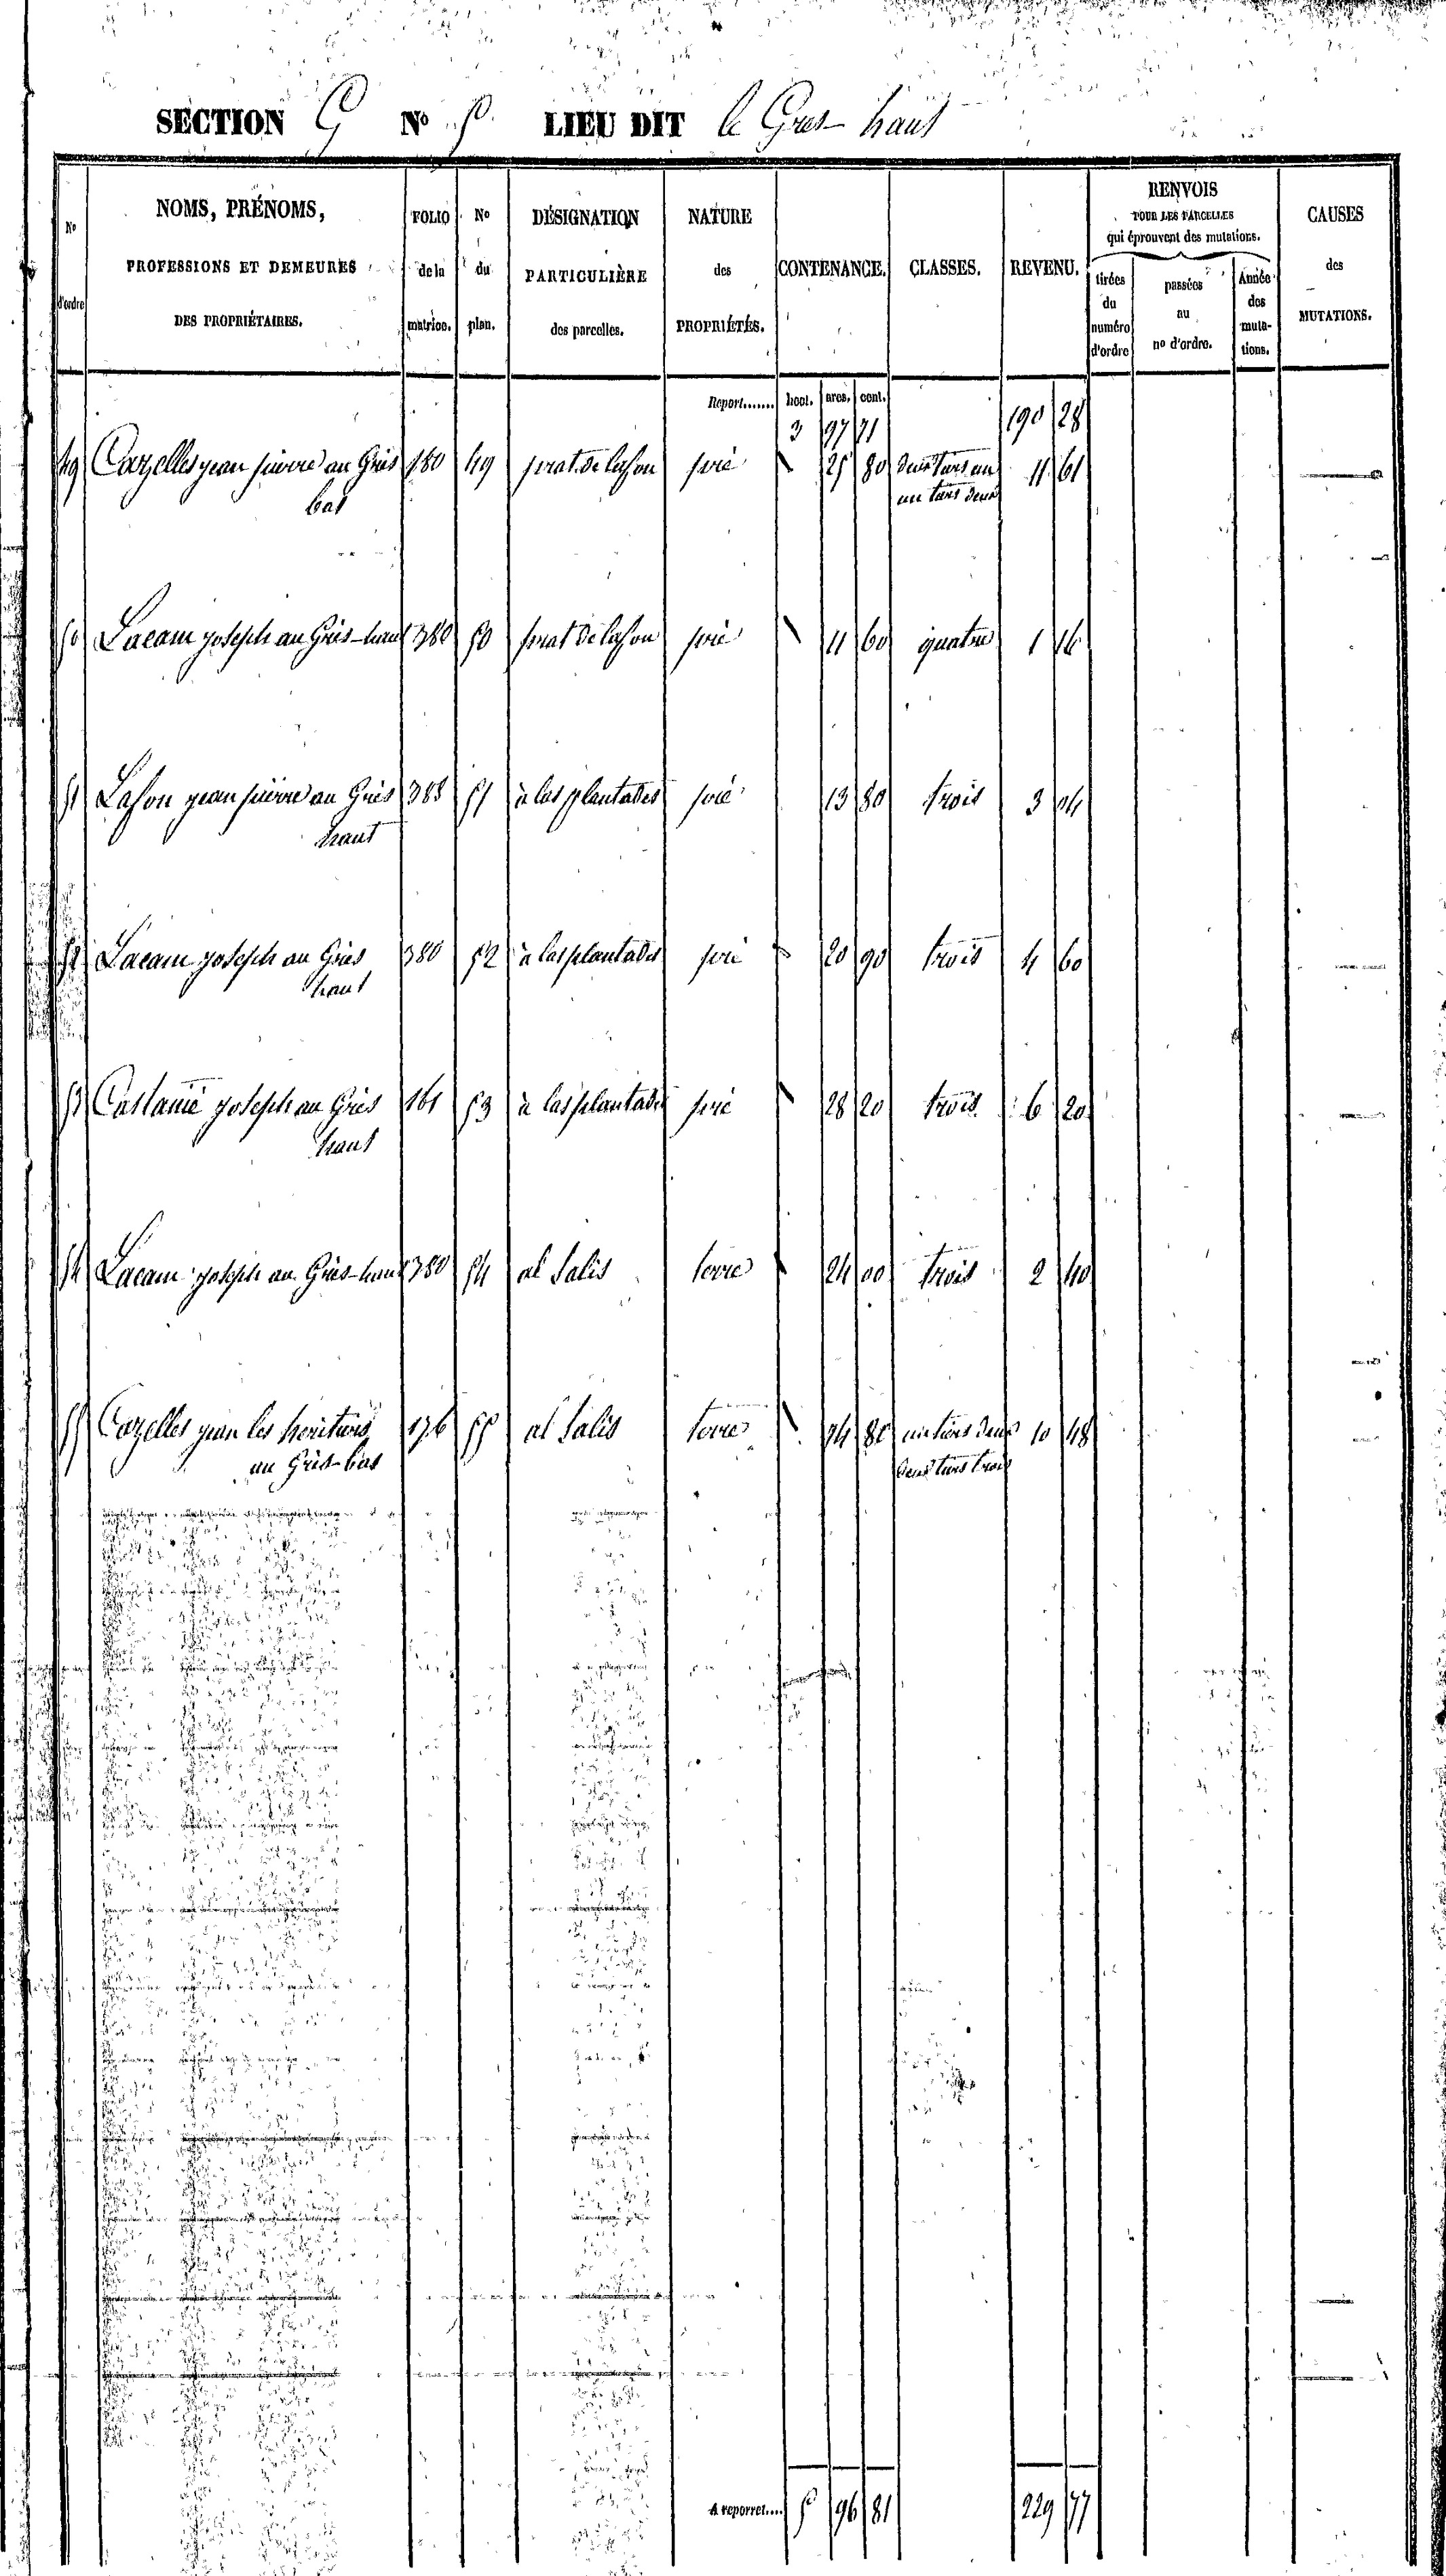 SECTION G N° 5 LIEU DIT le Gres-haut
N° d'ordre
NOMS, PRÉNOMS,
PROFESSIONS ET DEMEURES
DES PROPRIÉTAIRES.
FOLIO de la matrice.
N° du plan.
DÉSIGNATION
PARTICULIÈRE
des parcelles.
NATURE
des
PROPRIÉTÉS.
CONTENANCE.
CLASSES.
REVENU.
RENVOIS
POUR LES PARCELLES
qui éprouvent des mutations.
tirées du numéro d'ordre
passées au n° d'ordre.
Année des mutations.
CAUSES
des
MUTATIONS.
Report....... hect. ares. cent.
3 97 71 190 28
49 Cazelles jean pierre au Grès 180 49 prat de lafon pré 25 80 deux tiers un 11 61
bas un tiers deux
50 Lacam joseph au Grès-haut 380 50 prat de lafon pré 11 60 quatre 1 16
51 Lafon jean pierre au Grès 388 51 à las plantades pré 13 80 trois 3 04
haut
52 Lacam joseph au Grès 380 52 à las plantades pré 20 90 trois 4 60
haut
53 Castanié joseph au Grès 161 53 à las plantades pré 28 20 trois 6 20
haut
54 Lacam joseph au Grès-haut 380 54 al Salis terre 24 00 trois 2 40
55 Cazelles jean les héritiers 176 55 al Salis terre 74 80 un tiers deux 10 48
au Grès-bas deux tiers trois
A reporter.... 5 96 81 229 77